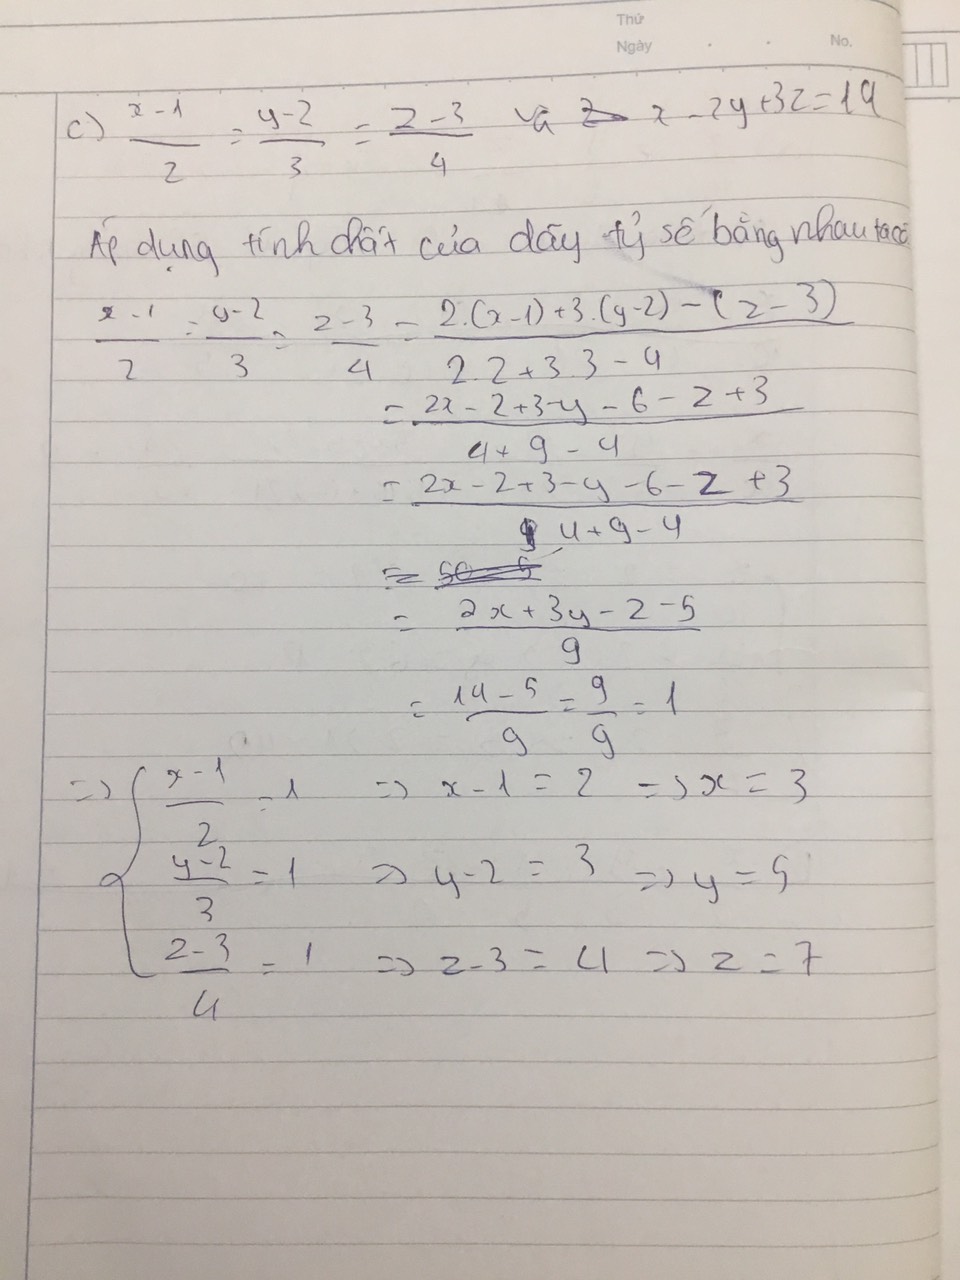 Thứ
Ngày . . No.
c) x-1/2 = y-2/3 = z-3/4 và x - 2y + 3z = 14
Áp dụng tính chất của dãy tỷ số bằng nhau ta có
x-1/2 = y-2/3 = z-3/4 = 2.(x-1)+3.(y-2)-(z-3)/2.2+3.3-4
= 2x-2+3y-6-z+3/4+9-4
= 2x-2+3y-6-z+3/4+9-4
= 2x+3y-z-5/9
= 14-5/9 = 9/9 = 1
=> { x-1/2 = 1 => x-1 = 2 => x = 3
y-2/3 = 1 => y-2 = 3 => y = 5
z-3/4 = 1 => z-3 = 4 => z = 7